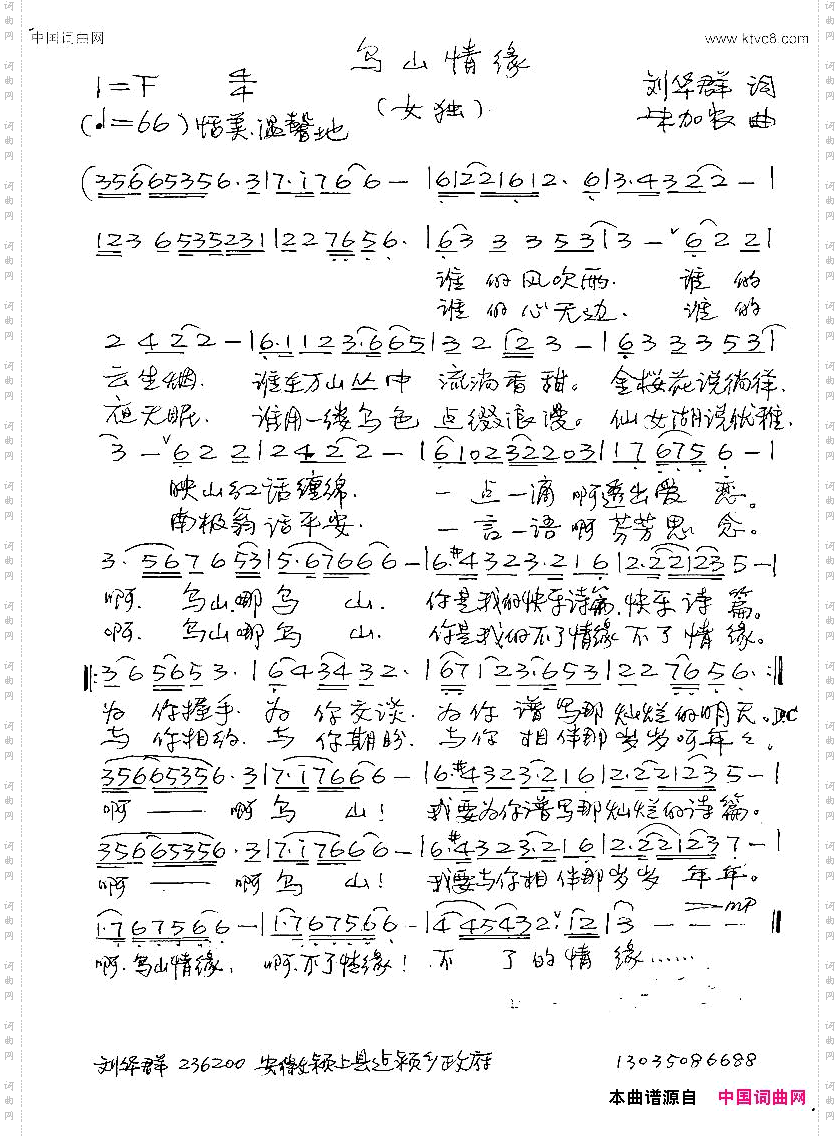 中国词曲网 www.ktvc8.com
乌山情缘
1=F 4/4 刘华群 词
(女独)
(♩=66)恬美.温馨地 朱加农 曲
(35665356.3|7.i766-|61221612.6|3.4322-|
1236535231|227656.|6333531|3-ˇ622|
谁的风吹雨. 谁的
谁的心无边. 谁的
2422-|6.1123.6665|32123-|6333531|
云生烟. 谁在万山丛中 流淌香甜。金樱花说徜徉.
夜无眠. 谁用一缕乌色 点缀浪漫。仙女湖说优雅.
3-ˇ622|2422-|6102322031|176756-|
映山红话缠绵. 一点一滴啊透出爱恋。
南极翁话平安. 一言一语啊芬芳思念。
3.567653|5.67666-|6.#4323.216|2.221235-|
啊. 乌山哪乌山. 你是我的快乐诗篇.快乐诗篇。
啊. 乌山哪乌山. 你是我的不了情缘不了情缘。
‖:365653.|643432.|67123.653|227656.:‖
为你握手.为你交谈.为你谱写那灿烂的明天。D.C
与你相约.与你期盼.与你相伴那岁岁呵年々.
35665356.3|7.i7666-|6.#4323.216|2.221235-|
啊——啊乌山! 我要为你谱写那灿烂的诗篇。
35665356.3|7.i7666-|6.#4323.216|2.221237-|
啊——啊乌山! 我要与你相伴那岁岁年年。
1.767566-|1.767566-|445432.ˇ12|3---‖ mp
啊.乌山情缘, 啊.不了情缘! 不了的情缘……
刘华群 236200 安徽省颍上县 颍乡政府 13035086688
本曲谱源自 中国词曲网